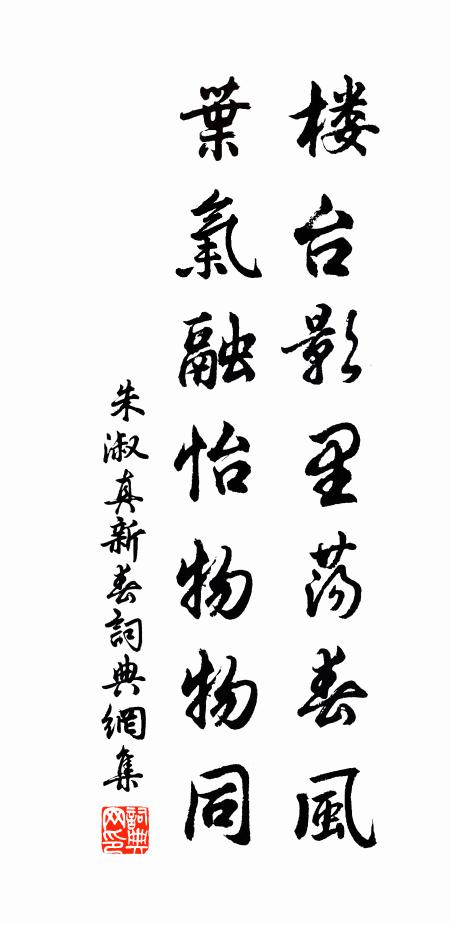 楼台影里荡春風
葉氣融怡物物同
朱淑真新春詞典網集
詞典网印